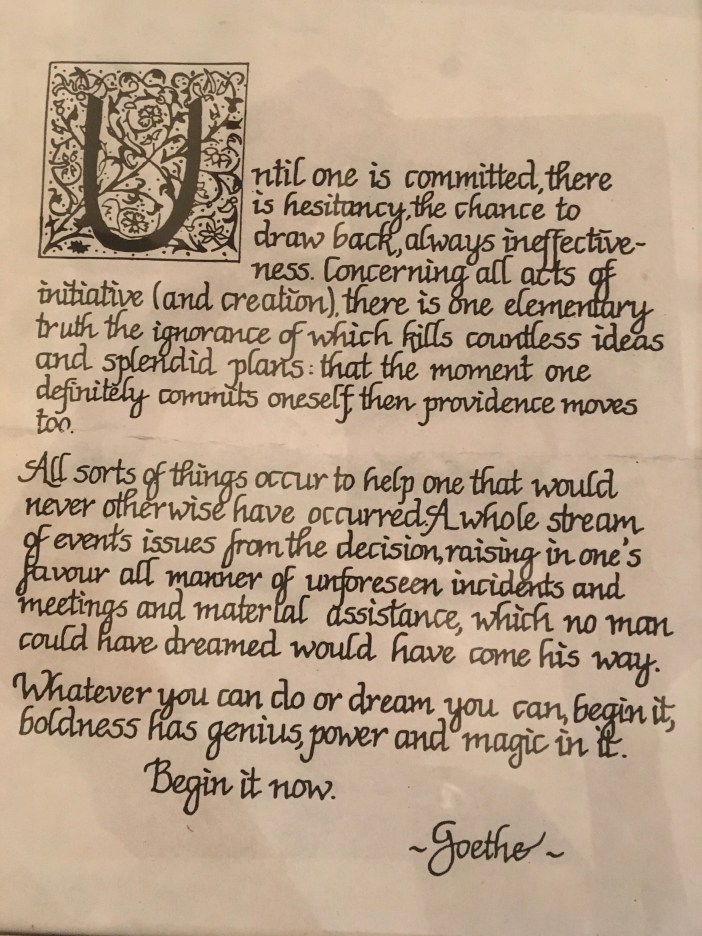 Until one is committed, there
is hesitancy, the chance to
draw back, always ineffective-
ness. Concerning all acts of
initiative (and creation), there is one elementary
truth the ignorance of which kills countless ideas
and splendid plans: that the moment one
definitely commits oneself, then providence moves
too.
All sorts of things occur to help one that would
never otherwise have occurred. A whole stream
of events issues from the decision, raising in one's
favour all manner of unforeseen incidents and
meetings and material assistance, which no man
could have dreamed would have come his way.
Whatever you can do or dream you can, begin it,
boldness has genius, power and magic in it.
Begin it now.
~Goethe~